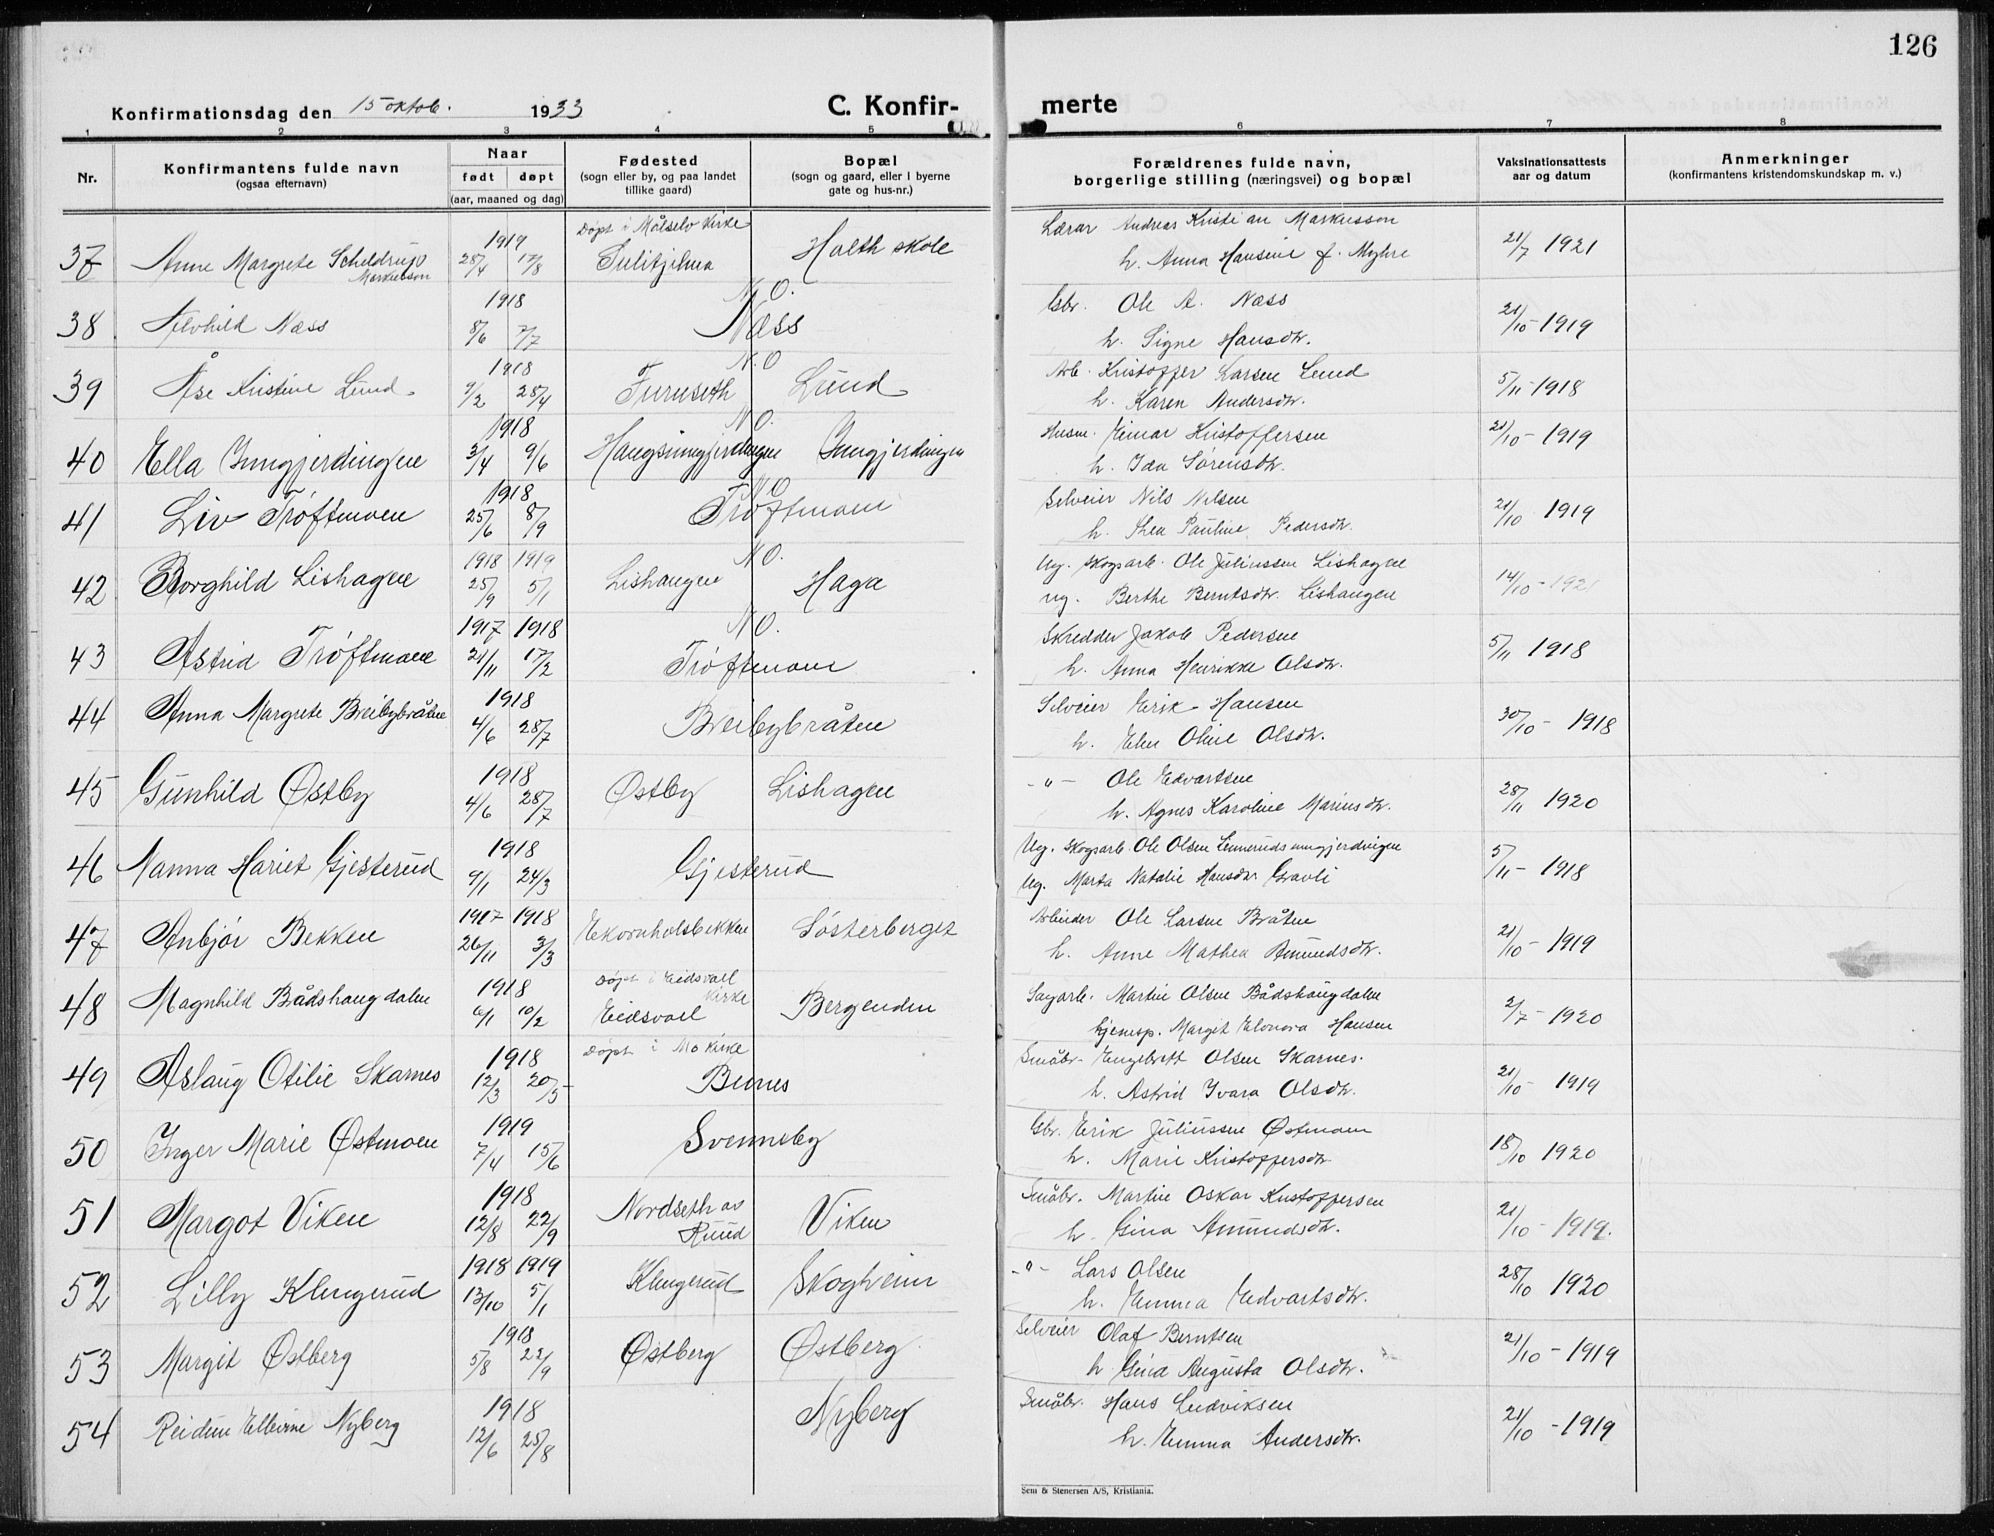 126
Konfirmationsdag den 15 oktob. 1933
C. Konfir-
merte
1 2 3 4 5 6 7 8
Nr.
Konfirmantens fulde navn
(ogsaa efternavn)
Naar
født døpt
(aar, maaned og dag)
Fødested
(sogn eller by, og paa landet
tillike gaard)
Bopæl
(sogn og gaard, eller i byerne
gate og hus-nr.)
Forældrenes fulde navn,
borgerlige stilling (næringsvei) og bopæl
Vaksinationsattests
aar og datum
Anmerkninger
(konfirmantens kristendomskundskap m. v.)
1919 Døpt i Målselv Kirke Lærar Andreas Kristian Markusson
37 Anne Margrete Scheldrup 28/4 17/8 Sulitjelma Holth skole 21/7 1921
Markusson h. Anna Hansine f. Myhre
1918 N.O. Gbr. Ole A. Næss
38 Alvhild Næss 8/6 7/7 Næss 21/10-1919
h. Signe Hansdtr.
1918 N.O Arb. Kristoffer Larsen Lund
39 Åse Kristine Lund 7/2 28/4 Furuseth Lund 5/11-1918
h. Karen Andersdtr.
1918 N.O. Husm. Einar Kristoffersen
40 Ella Ungjerdingen 3/4 9/6 Haugsungjerdingen Ungjerdingen 21/10-1919
h. Ida Sørensdtr.
1918 N.O Selveier Nils Nilsen
41 Liv Trøftmoen 25/6 8/9 Trøftmoen 21/10 1919
h. Thea Pauline Pedersdtr.
1918 1919 N.O. Ug. skogsarb. Ole Juliussen Lishagen
42 Borghild Lishagen 25/9 5/1 Lishaugen Haga 14/10-1921
ug. Berthe Berntsdtr. Lishaugen
1917 1918 N.O. Skredder Jakob Pedersen
43 Astrid Trøftmoen 24/11 17/2 Trøftmoen 5/11 1918
h. Anna Henrikke Olsdtr.
1918 Selveier Erik Hansen
44 Anna Margrete Breibybråten 4/6 28/7 Breibybråten 30/10-1918
h. Elen Oline Olsdtr.
1918 -"- Ole Edvartsen
45 Gunhild Østby 4/6 28/7 Østby Lishagen 28/11 1920
h. Agnes Karoline Mariusdtr.
1918 Ug. skogsarb. Ole Olsen Lunnerudsungjerdingen
46 Nanna Hariet Gjesterud 9/1 24/3 Gjesterud 5/11-1918
Ug. Marta Natalie Hansdtr. Gravli
1917 1918 Arbeider Ole Larsen Bråten
47 Anbjør Bekken 26/11 3/3 Ekornholsbekken Søsterberget 21/10-1919
h. Anne Mathea Amundsdtr.
1918 Døpt i Eidsvoll Kirke Sagarb. Martin Olsen Bådshaugdalen
48 Magnhild Bådshaugdalen 6/1 10/2 Eidsvoll Bergenden 2/7-1920
hjemsp. Margit Elonora Hansen
1918 Døpt i Mo Kirke Småbr. Engebrett Olsen Skarnes.
49 Aslaug Otilie Skarnes 12/3 20/5 Bunes 21/10-1919
h. Astrid Ivara Olsdtr.
1919 Gbr. Erik Juliussen Østmoen
50 Inger Marie Østmoen 7/4 15/6 Svenneby 18/10 1920
h. Marie Kristoffersdtr
1918 Småbr. Martin Oskar Kristoffersen
51 Margot Viken 12/8 22/9 Nordseth av Ruud Viken 21/10-1919.
h. Gina Amundsdtr.
1918 1919 -"- Lars Olsen
52 Lilly Klingerud 13/10 5/1 Klingerud Skogheim 28/10 1920
h. Emma Edvartsdtr.
1918 Selveier Olaf Berntsen
53 Margit Østberg 5/8 22/9 Østberg Østberg 21/10-1919
h Gina Augusta Olsdtr.
1918 Småbr. Hans Ludviksen
54 Reidun Ellevine Nyberg 12/6 25/8 Nyberg 21/10-1919
h. Emma Andersdtr.
Sem & Stenersen A/S, Kristiania.